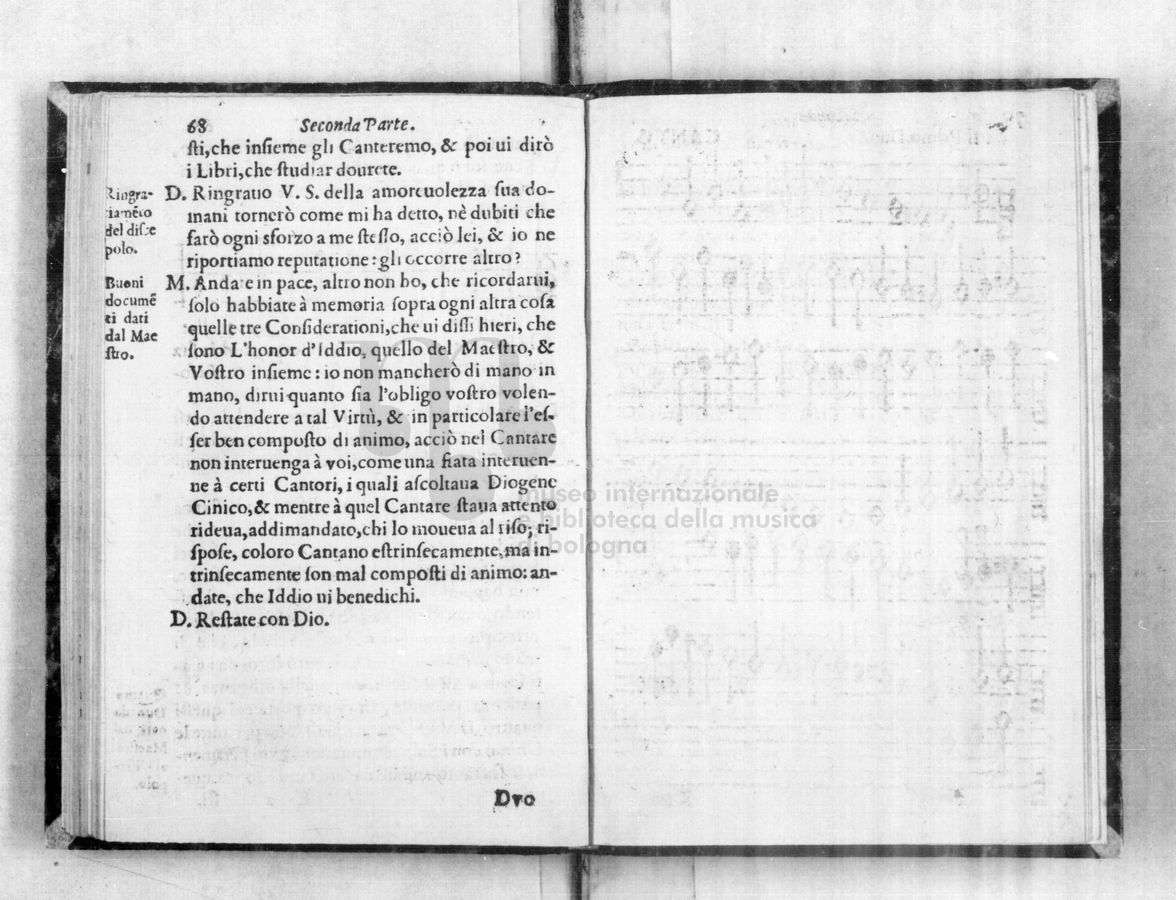 68 Seconda Parte.
sti, che insieme gli Canteremo, & poi ui dirò
i Libri, che studiar dourete.
Ringra-
iamẽto
del disce
polo.
D. Ringratio V. S. della amoreuolezza sua do-
mani tornerò come mi ha detto, nè dubiti che
farò ogni sforzo a me stesso, acciò lei, & io ne
riportiamo reputatione: gli occorre altro?
Buoni
documẽ
ti dati
dal Mae
stro.
M. Andate in pace, altro non ho, che ricordarui,
solo habbiate à memoria sopra ogni altra cosa
quelle tre Considerationi, che ui dissi hieri, che
sono L'honor d'Iddio, quello del Maestro, &
Vostro insieme: io non mancherò di mano in
mano, dirui quanto sia l'obligo vostro volen-
do attendere a tal Virtù, & in particolare l'es-
ser ben composto di animo, acciò nel Cantare
non interuenga à voi, come una fiata interuen-
ne à certi Cantori, i quali ascoltaua Diogene
Cinico, & mentre à quel Cantare staua attento
rideua, addimandato, chi lo moueua al riso; ri-
spose, coloro Cantano estrinsecamente, ma in-
trinsecamente son mal composti di animo: an-
date, che Iddio ui benedichi.
D. Restate con Dio.
Dvo
museo internazionale
e biblioteca della musica
di bologna